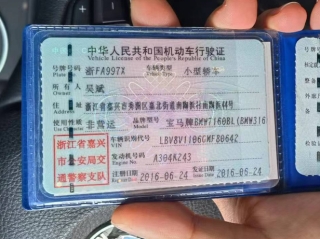 中华人民共和国机动车行驶证
Vehicle License of the People's Republic of China
号牌号码 浙FA997X 车辆类型 小型轿车
Plate No. Vehicle Type
所有人 吴斌
Owner
住址 浙江省嘉兴市
Address
使用性质 非营运 品牌型号 宝马牌BMW7160BL(BMW316
浙江省嘉兴
市公安局交
通警察支队
车辆识别代号 LBV8V1106GMF80642
VIN
发动机号码 A304K243
Engine No.
注册日期 2016-06-24 发证日期 2016-06-24